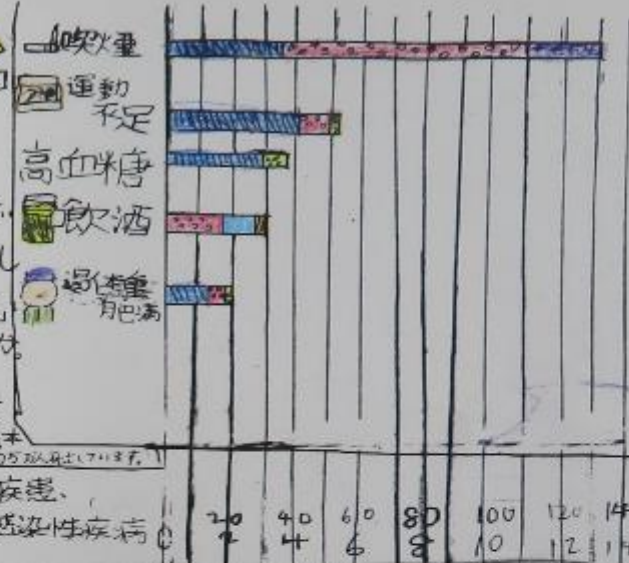 喫煙
運動
不足
高血糖
飲酒
過体重
肥満
疾患、
感染性疾病
20 40 60 80 100 120
0 2 4 6 8 10 12